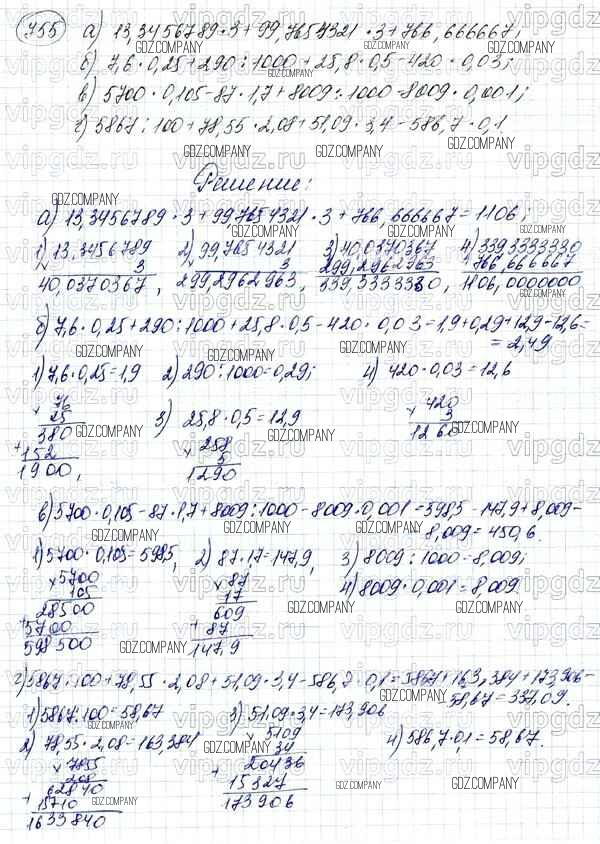 755 а) 13,3456789·3+99,7654321·3+766,666667;
б) 7,6·0,25+290:1000+25,8·0,5-420·0,03;
в) 5700·0,105-87·1,7+8009:1000-8009·0,001;
г) 5867:100+78,55·2,08+51,09·3,4-586,7·0,1.
Решение:
а) 13,3456789·3+99,7654321·3+766,666667=1106;
1) 13,3456789 2) 99,7654321 3) 40,0370367 4) 339,3333330
× 3 × 3 299,2962963 +766,666667
40,0370367, 299,2962963, 339,3333330, 1106,0000000
б) 7,6·0,25+290:1000+25,8·0,5-420·0,03=1,9+0,29+12,9-12,6=
=2,49
1) 7,6·0,25=1,9 2) 290:1000=0,29; 4) 420·0,03=12,6
× 76 3) 25,8·0,5=12,9 × 420
25 × 258 3
380 5 1260
+152 1290
1900,
в) 5700·0,105-87·1,7+8009:1000-8009·0,001=598,5-147,9+8,009-
-8,009=450,6.
1) 5700·0,105=598,5, 2) 87·1,7=147,9, 3) 8009:1000=8,009;
×5700 ×87 4) 8009·0,001=8,009
105 17
28500 609
+5700 +87
598500 147,9
г) 5867:100+78,55·2,08+51,09·3,4-586,7·0,1=58,67+163,384+173,906-
-58,67=337,09.
1) 5867:100=58,67 3) 51,09·3,4=173,906
2) 78,55·2,08=163,384 × 5109 4) 586,7·0,1=58,67.
×7855 34
208 20436
62840 +15327
+15710 173906
1633840
vipgdz.ru
GDZ.COMPANY